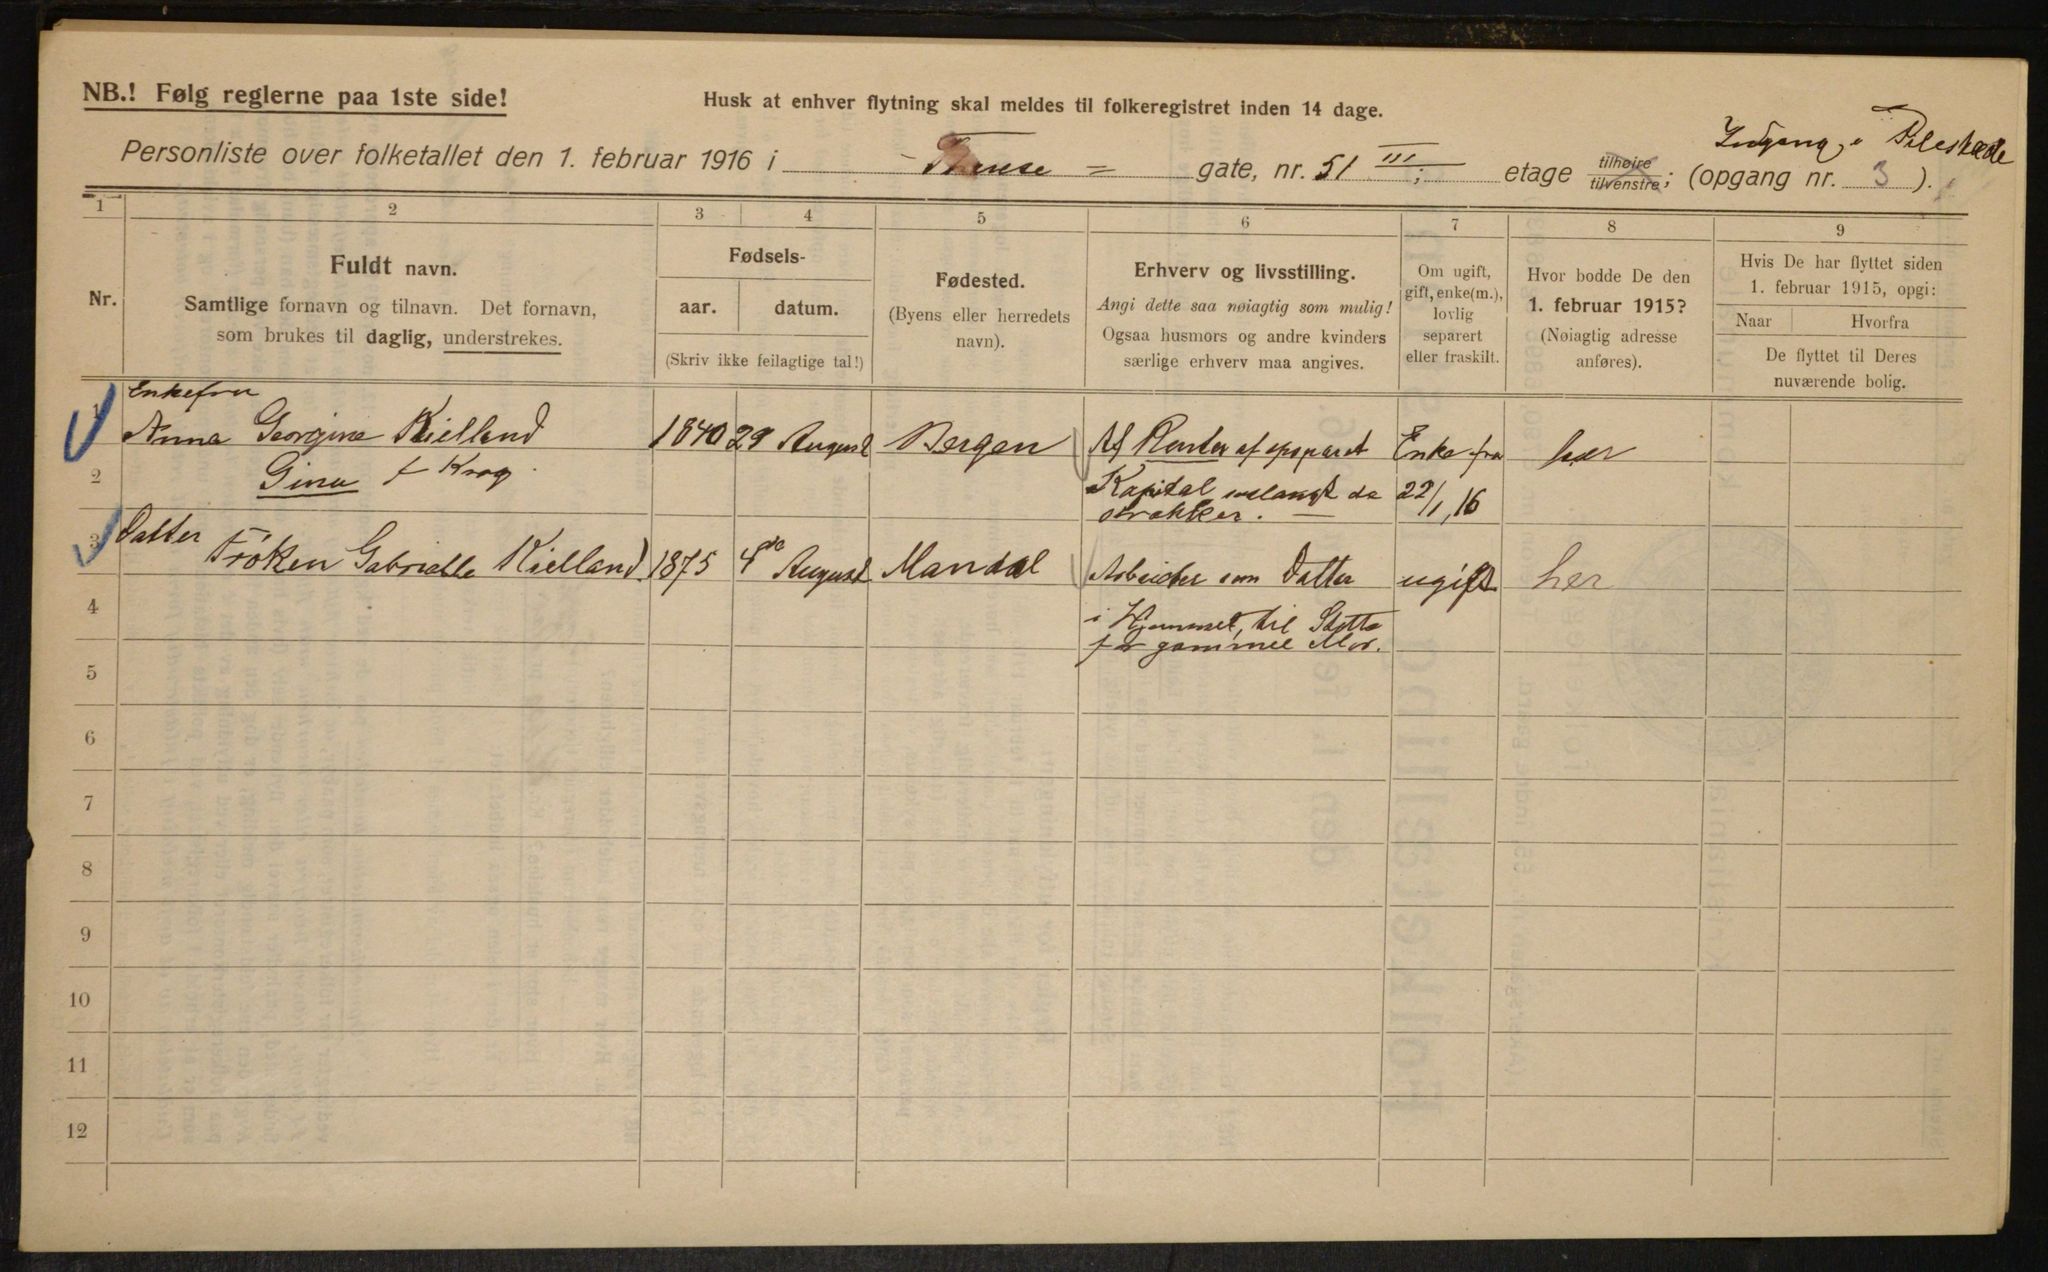 NB.! Følg reglerne paa 1ste side!
Husk at enhver flytning skal meldes til folkeregistret inden 14 dage.
Indgang i Pilestræde
Personliste over folketallet den 1. februar 1916 i Thense gate, nr. 51 III; etage tilhøire tilvenstre; (opgang nr. 3).
1 2 3 4 5 6 7 8 9
Nr.
Fuldt navn.
Samtlige fornavn og tilnavn. Det fornavn,
som brukes til daglig, understrekes.
Fødsels-
aar. datum.
(Skriv ikke feilagtige tal!)
Fødested.
(Byens eller herredets
navn).
Erhverv og livsstilling.
Angi dette saa nøiagtig som mulig!
Ogsaa husmors og andre kvinders
særlige erhverv maa angives.
Om ugift,
gift, enke(m.),
lovlig
separert
eller fraskilt.
Hvor bodde De den
1. februar 1915?
(Nøiagtig adresse
anføres).
Hvis De har flyttet siden
1. februar 1915, opgi:
Naar Hvorfra
De flyttet til Deres
nuværende bolig.
Enkefru
1 Anna Georgine Kielland 1840 29 August Bergen Af Renter af opsparet Enke fra her
2 Gina f Krog. Kapital saalangt de 22/1, 16
strækker.
3 Datter Frøken Gabrielle Kielland 1875 4de August Mandal Arbeider som Datter ugift her
4 i Hjemmet, til Støtte
for gammel Mor.
5
6
7
8
9
10
11
12